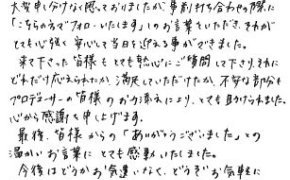 大変申し分けなく思っておりましたが、事前打ち合わせの際に
「こちらの方でフォローいたします」のお言葉をいただき、それが
とても心強く安心して当日を迎える事ができました。
来て下さった皆様もとても熱心にご質問して下さり、それに
どれだけ応えられたか、満足していただけたか、不安な部分も
プロデューサーの皆様のお力添えにより、とても助けられました。
心から感謝を申し上げます。
最後、皆様からの「ありがとうございました」との
温かいお言葉にとても感動いたしました。
今後はどうかお気遣いなく、どうぞお気軽に